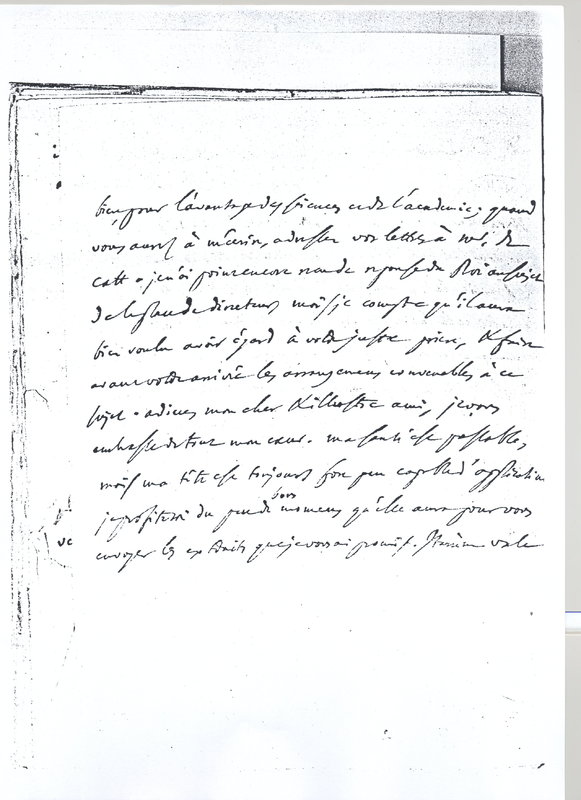 bien pour l'avantage des sciences et de l'academie; quand
vous aurez à m'ecrire, adressez vos lettres à Mr. de
Catt. je n'ai point encore reçu de reponse du Roi au sujet
de la place de directeur mais je compte qu'il aura
bien voulu avoir égard à votre juste priere, & faire
avant votre arrivée les arrangemens convenables à ce
sujet. adieu mon cher & illustre ami, je vous
embrasse de tout mon cœur. ma santé est passable,
mais ma tête est toujours fort peu capable d'application
je profiterai du peu de bons momens qu'elle aura pour vous
envoyer les extraits que je vous ai promis. Iterum vale
vc